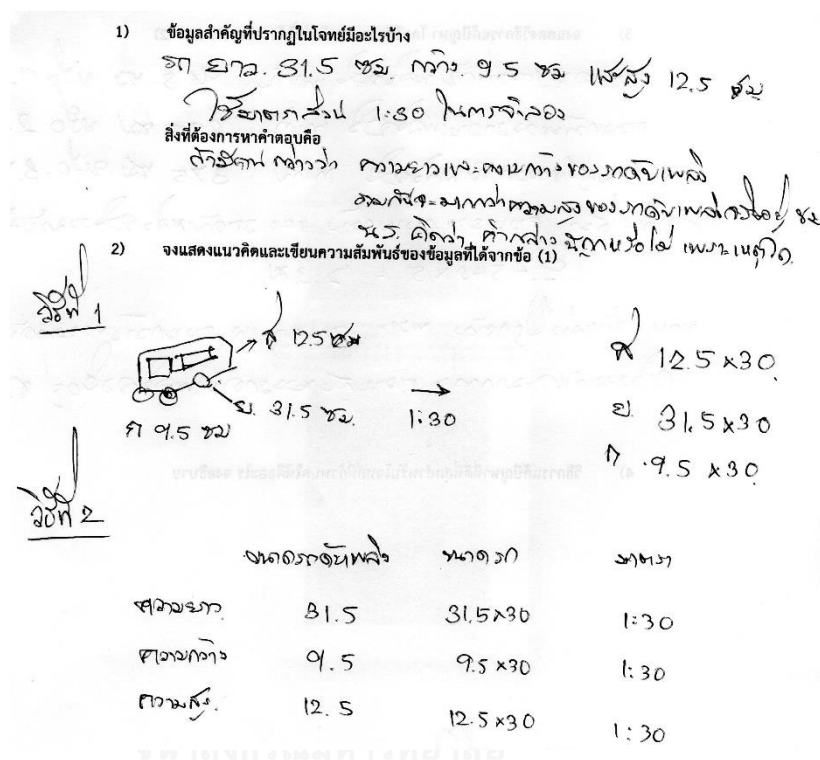 1) ข้อมูลสำคัญที่ปรากฏในโจทย์มีอะไรบ้าง
รถ ยาว 31.5 ซม. กว้าง 9.5 ซม และสูง 12.5 ซม
ใช้มาตราส่วน 1:30 ในการจำลอง
สิ่งที่ต้องการหาคำตอบคือ
กล่าวว่า ความยาวและความกว้างของรถดับเพลิง
รวมกันจะมากกว่าความสูงของรถดับเพลิง ซม
น.ร. คิดว่า คำกล่าวนี้ถูกหรือไม่ เพราะเหตุใด
2) จงแสดงแนวคิดและเขียนความสัมพันธ์ของข้อมูลที่ได้จากข้อ (1)
วิธีที่ 1
ส 12.5 ซม
ย. 31.5 ซม.
ก 9.5 ซม
→
1:30
ส 12.5 x30
ย. 31.5 x30
ก 9.5 x30
วิธีที่ 2
ขนาดรถดับเพลิง ขนาดรถ มาตรา
ความยาว 31.5 31.5x30 1:30
ความกว้าง 9.5 9.5 x30 1:30
ความสูง 12.5 12.5 x30 1:30